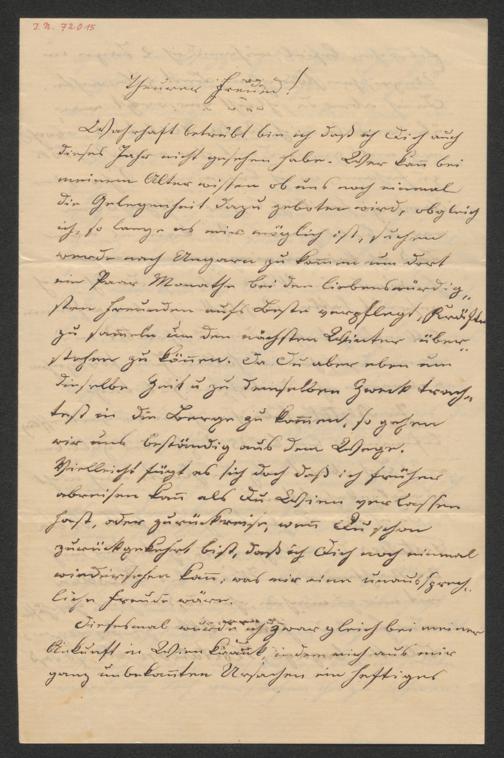 I.N. 72015
Theurer Freund!
Wahrhaft betrübt bin ich daß ich Dich auch
dieses Jahr nicht gesehen habe. Wer kan̄ bei
meinem Alter wissen ob uns noch einmal
die Gelegenheit dazu geboten wird, obgleich
ich, so lange es mir möglich ist, suchen
werde nach Ungarn zu kom̄en um dort
ein Paar Monathe bei den liebenswürdig„
sten Freunden aufs Beste verpflegt, Kräfte
zu sam̄eln um den nächsten Winter über„
stehen zu kön̄en. Da Du aber eben um
dieselbe Zeit u zu demselben Zweck trach„
test in die Berge zu kom̄en, so gehen
wir uns beständig aus dem Wege.
Vielleicht fügt es sich doch daß ich früher
abreisen kan̄ als Du Wien verlassen
hast, oder zurückreise, wen̄ Du schon
zurückgekehrt bist, daß ich Dich noch einmal
wiedersehen kan̄, was mir eine unaussprech„
liche Freude wäre.
Diesesmal wurde ich zwar gleich bei meiner
Ankunft in Wien krank, indem mich aus mir
ganz unbekan̄ten Ursachen ein heftiges